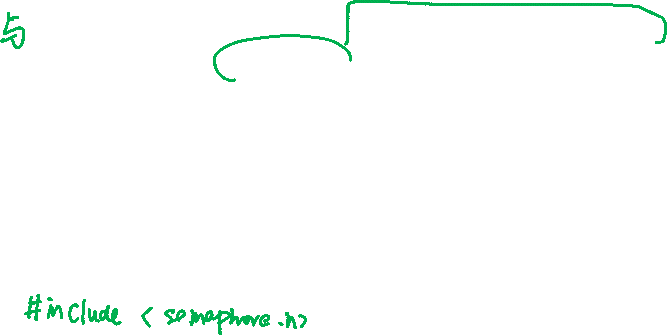 与
#include <semaphore.h>